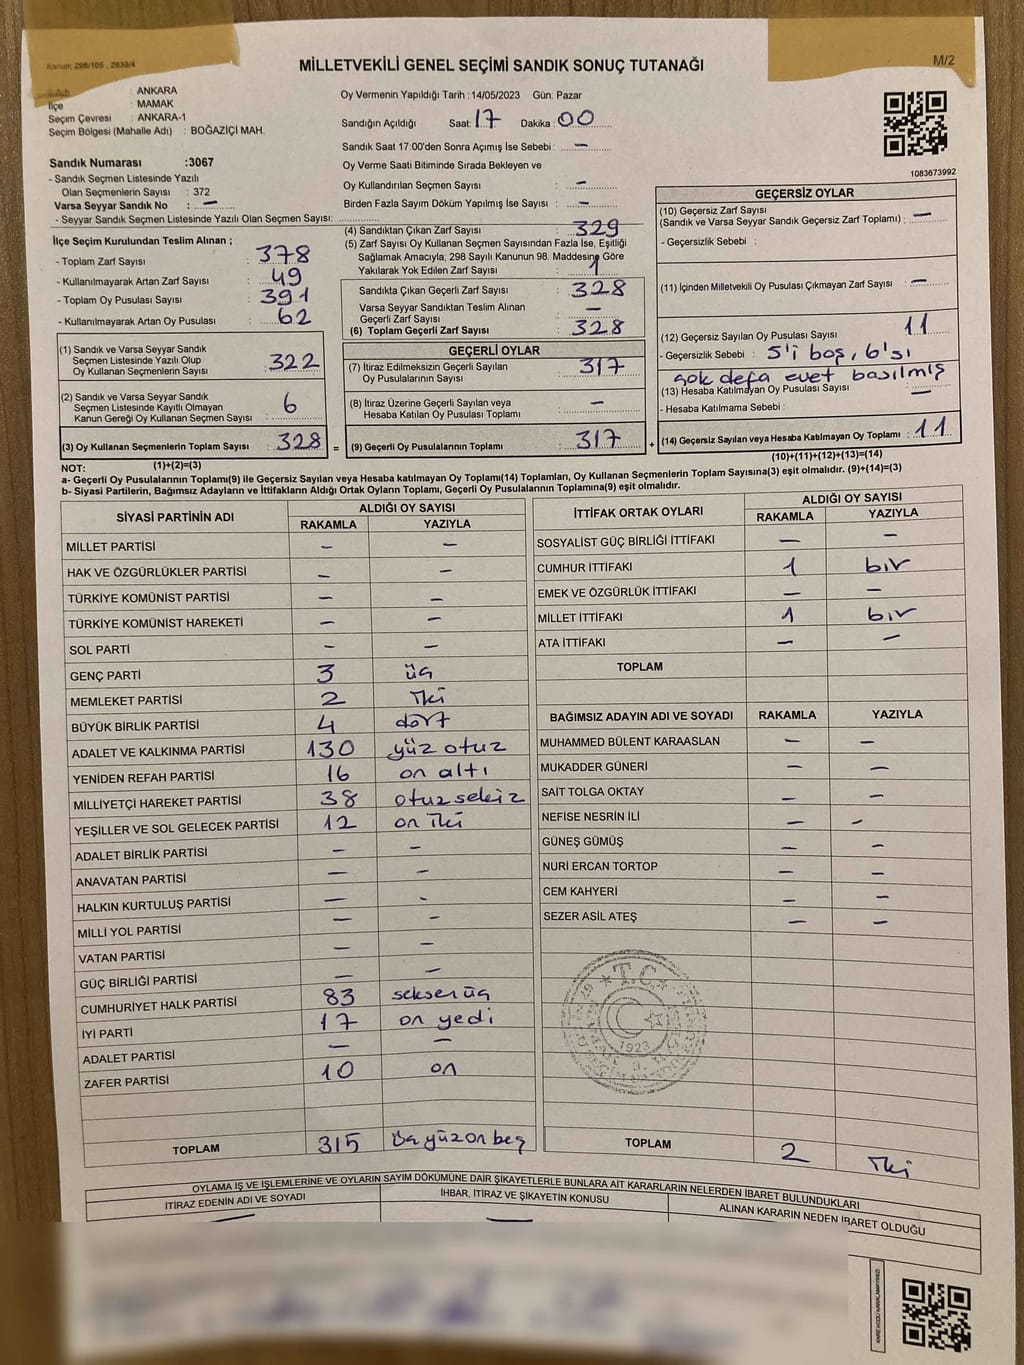 Kanun: 298/105 , 2839/4
M/2
MİLLETVEKİLİ GENEL SEÇİMİ SANDIK SONUÇ TUTANAĞI
: ANKARA
İlçe : MAMAK
Seçim Çevresi : ANKARA-1
Seçim Bölgesi (Mahalle Adı) : BOĞAZİÇİ MAH.
Sandık Numarası :3067
- Sandık Seçmen Listesinde Yazılı
Olan Seçmenlerin Sayısı : 372
Varsa Seyyar Sandık No : –
- Seyyar Sandık Seçmen Listesinde Yazılı Olan Seçmen Sayısı:
Oy Vermenin Yapıldığı Tarih :14/05/2023 Gün: Pazar
Sandığın Açıldığı Saat: 17 Dakika: 00
Sandık Saat 17:00'den Sonra Açımış İse Sebebi : –
Oy Verme Saati Bitiminde Sırada Bekleyen ve
Oy Kullandırılan Seçmen Sayısı : –
Birden Fazla Sayım Döküm Yapılmış İse Sayısı : –
1083673992
İlçe Seçim Kurulundan Teslim Alınan ;
- Toplam Zarf Sayısı : 378
- Kullanılmayarak Artan Zarf Sayısı : 49
- Toplam Oy Pusulası Sayısı : 391
- Kullanılmayarak Artan Oy Pusulası : 62
(1) Sandık ve Varsa Seyyar Sandık
Seçmen Listesinde Yazılı Olup
Oy Kullanan Seçmenlerin Sayısı : 322
(2) Sandık ve Varsa Seyyar Sandık
Seçmen Listesinde Kayıtlı Olmayan
Kanun Gereği Oy Kullanan Seçmen Sayısı : 6
(3) Oy Kullanan Seçmenlerin Toplam Sayısı : 328 =
(4) Sandıktan Çıkan Zarf Sayısı : 329
(5) Zarf Sayısı Oy Kullanan Seçmen Sayısından Fazla İse, Eşitliği
Sağlamak Amacıyla; 298 Sayılı Kanunun 98. Maddesine Göre
Yakılarak Yok Edilen Zarf Sayısı : 1
Sandıkta Çıkan Geçerli Zarf Sayısı : 328
Varsa Seyyar Sandıktan Teslim Alınan
Geçerli Zarf Sayısı : –
(6) Toplam Geçerli Zarf Sayısı : 328
GEÇERLİ OYLAR
(7) İtiraz Edilmeksizin Geçerli Sayılan
Oy Pusulalarının Sayısı : 317
(8) İtiraz Üzerine Geçerli Sayılan veya
Hesaba Katılan Oy Pusulası Toplamı : –
(9) Geçerli Oy Pusulalarının Toplamı : 317 +
GEÇERSİZ OYLAR
(10) Geçersiz Zarf Sayısı
(Sandık ve Varsa Seyyar Sandık Geçersiz Zarf Toplamı) : –
- Geçersizlik Sebebi :
(11) İçinden Milletvekili Oy Pusulası Çıkmayan Zarf Sayısı : –
(12) Geçersiz Sayılan Oy Pusulası Sayısı : 11
- Geçersizlik Sebebi : 5'i boş, 6'sı
çok defa evet basılmış
(13) Hesaba Katılmayan Oy Pusulası Sayısı : –
- Hesaba Katılmama Sebebi :
(14) Geçersiz Sayılan veya Hesaba Katılmayan Oy Toplamı : 11
NOT: (1)+(2)=(3)
(10)+(11)+(12)+(13)=(14)
a- Geçerli Oy Pusulalarının Toplamı(9) ile Geçersiz Sayılan veya Hesaba katılmayan Oy Toplamı(14) Toplamları, Oy Kullanan Seçmenlerin Toplam Sayısına(3) eşit olmalıdır. (9)+(14)=(3)
b- Siyasi Partilerin, Bağımsız Adayların ve İttifakların Aldığı Ortak Oyların Toplamı, Geçerli Oy Pusulalarının Toplamına(9) eşit olmalıdır.
SİYASİ PARTİNİN ADI ALDIĞI OY SAYISI
RAKAMLA YAZIYLA
MİLLET PARTİSİ – –
HAK VE ÖZGÜRLÜKLER PARTİSİ – –
TÜRKİYE KOMÜNİST PARTİSİ – –
TÜRKİYE KOMÜNİST HAREKETİ – –
SOL PARTİ – –
GENÇ PARTİ 3 üç
MEMLEKET PARTİSİ 2 iki
BÜYÜK BİRLİK PARTİSİ 4 dört
ADALET VE KALKINMA PARTİSİ 130 yüz otuz
YENİDEN REFAH PARTİSİ 16 on altı
MİLLİYETÇİ HAREKET PARTİSİ 38 otuz sekiz
YEŞİLLER VE SOL GELECEK PARTİSİ 12 on iki
ADALET BİRLİK PARTİSİ – –
ANAVATAN PARTİSİ – –
HALKIN KURTULUŞ PARTİSİ – –
MİLLİ YOL PARTİSİ – –
VATAN PARTİSİ – –
GÜÇ BİRLİĞİ PARTİSİ – –
CUMHURİYET HALK PARTİSİ 83 seksen üç
İYİ PARTİ 17 on yedi
ADALET PARTİSİ – –
ZAFER PARTİSİ 10 on
TOPLAM 315 üç yüz on beş
İTTİFAK ORTAK OYLARI ALDIĞI OY SAYISI
RAKAMLA YAZIYLA
SOSYALİST GÜÇ BİRLİĞİ İTTİFAKI – –
CUMHUR İTTİFAKI 1 bir
EMEK VE ÖZGÜRLÜK İTTİFAKI – –
MİLLET İTTİFAKI 1 bir
ATA İTTİFAKI – –
TOPLAM
BAĞIMSIZ ADAYIN ADI VE SOYADI RAKAMLA YAZIYLA
MUHAMMED BÜLENT KARAASLAN – –
MUKADDER GÜNERİ – –
SAİT TOLGA OKTAY – –
NEFİSE NESRİN İLİ – –
GÜNEŞ GÜMÜŞ – –
NURİ ERCAN TORTOP – –
CEM KAHYERİ – –
SEZER ASİL ATEŞ – –
T.C.
1923
TOPLAM 2 iki
OYLAMA İŞ VE İŞLEMLERİNE VE OYLARIN SAYIM DÖKÜMÜNE DAİR ŞİKAYETLERLE BUNLARA AİT KARARLARIN NELERDEN İBARET BULUNDUKLARI
İTİRAZ EDENİN ADI VE SOYADI İHBAR, İTİRAZ VE ŞİKAYETİN KONUSU ALINAN KARARIN NEDEN İBARET OLDUĞU
– –